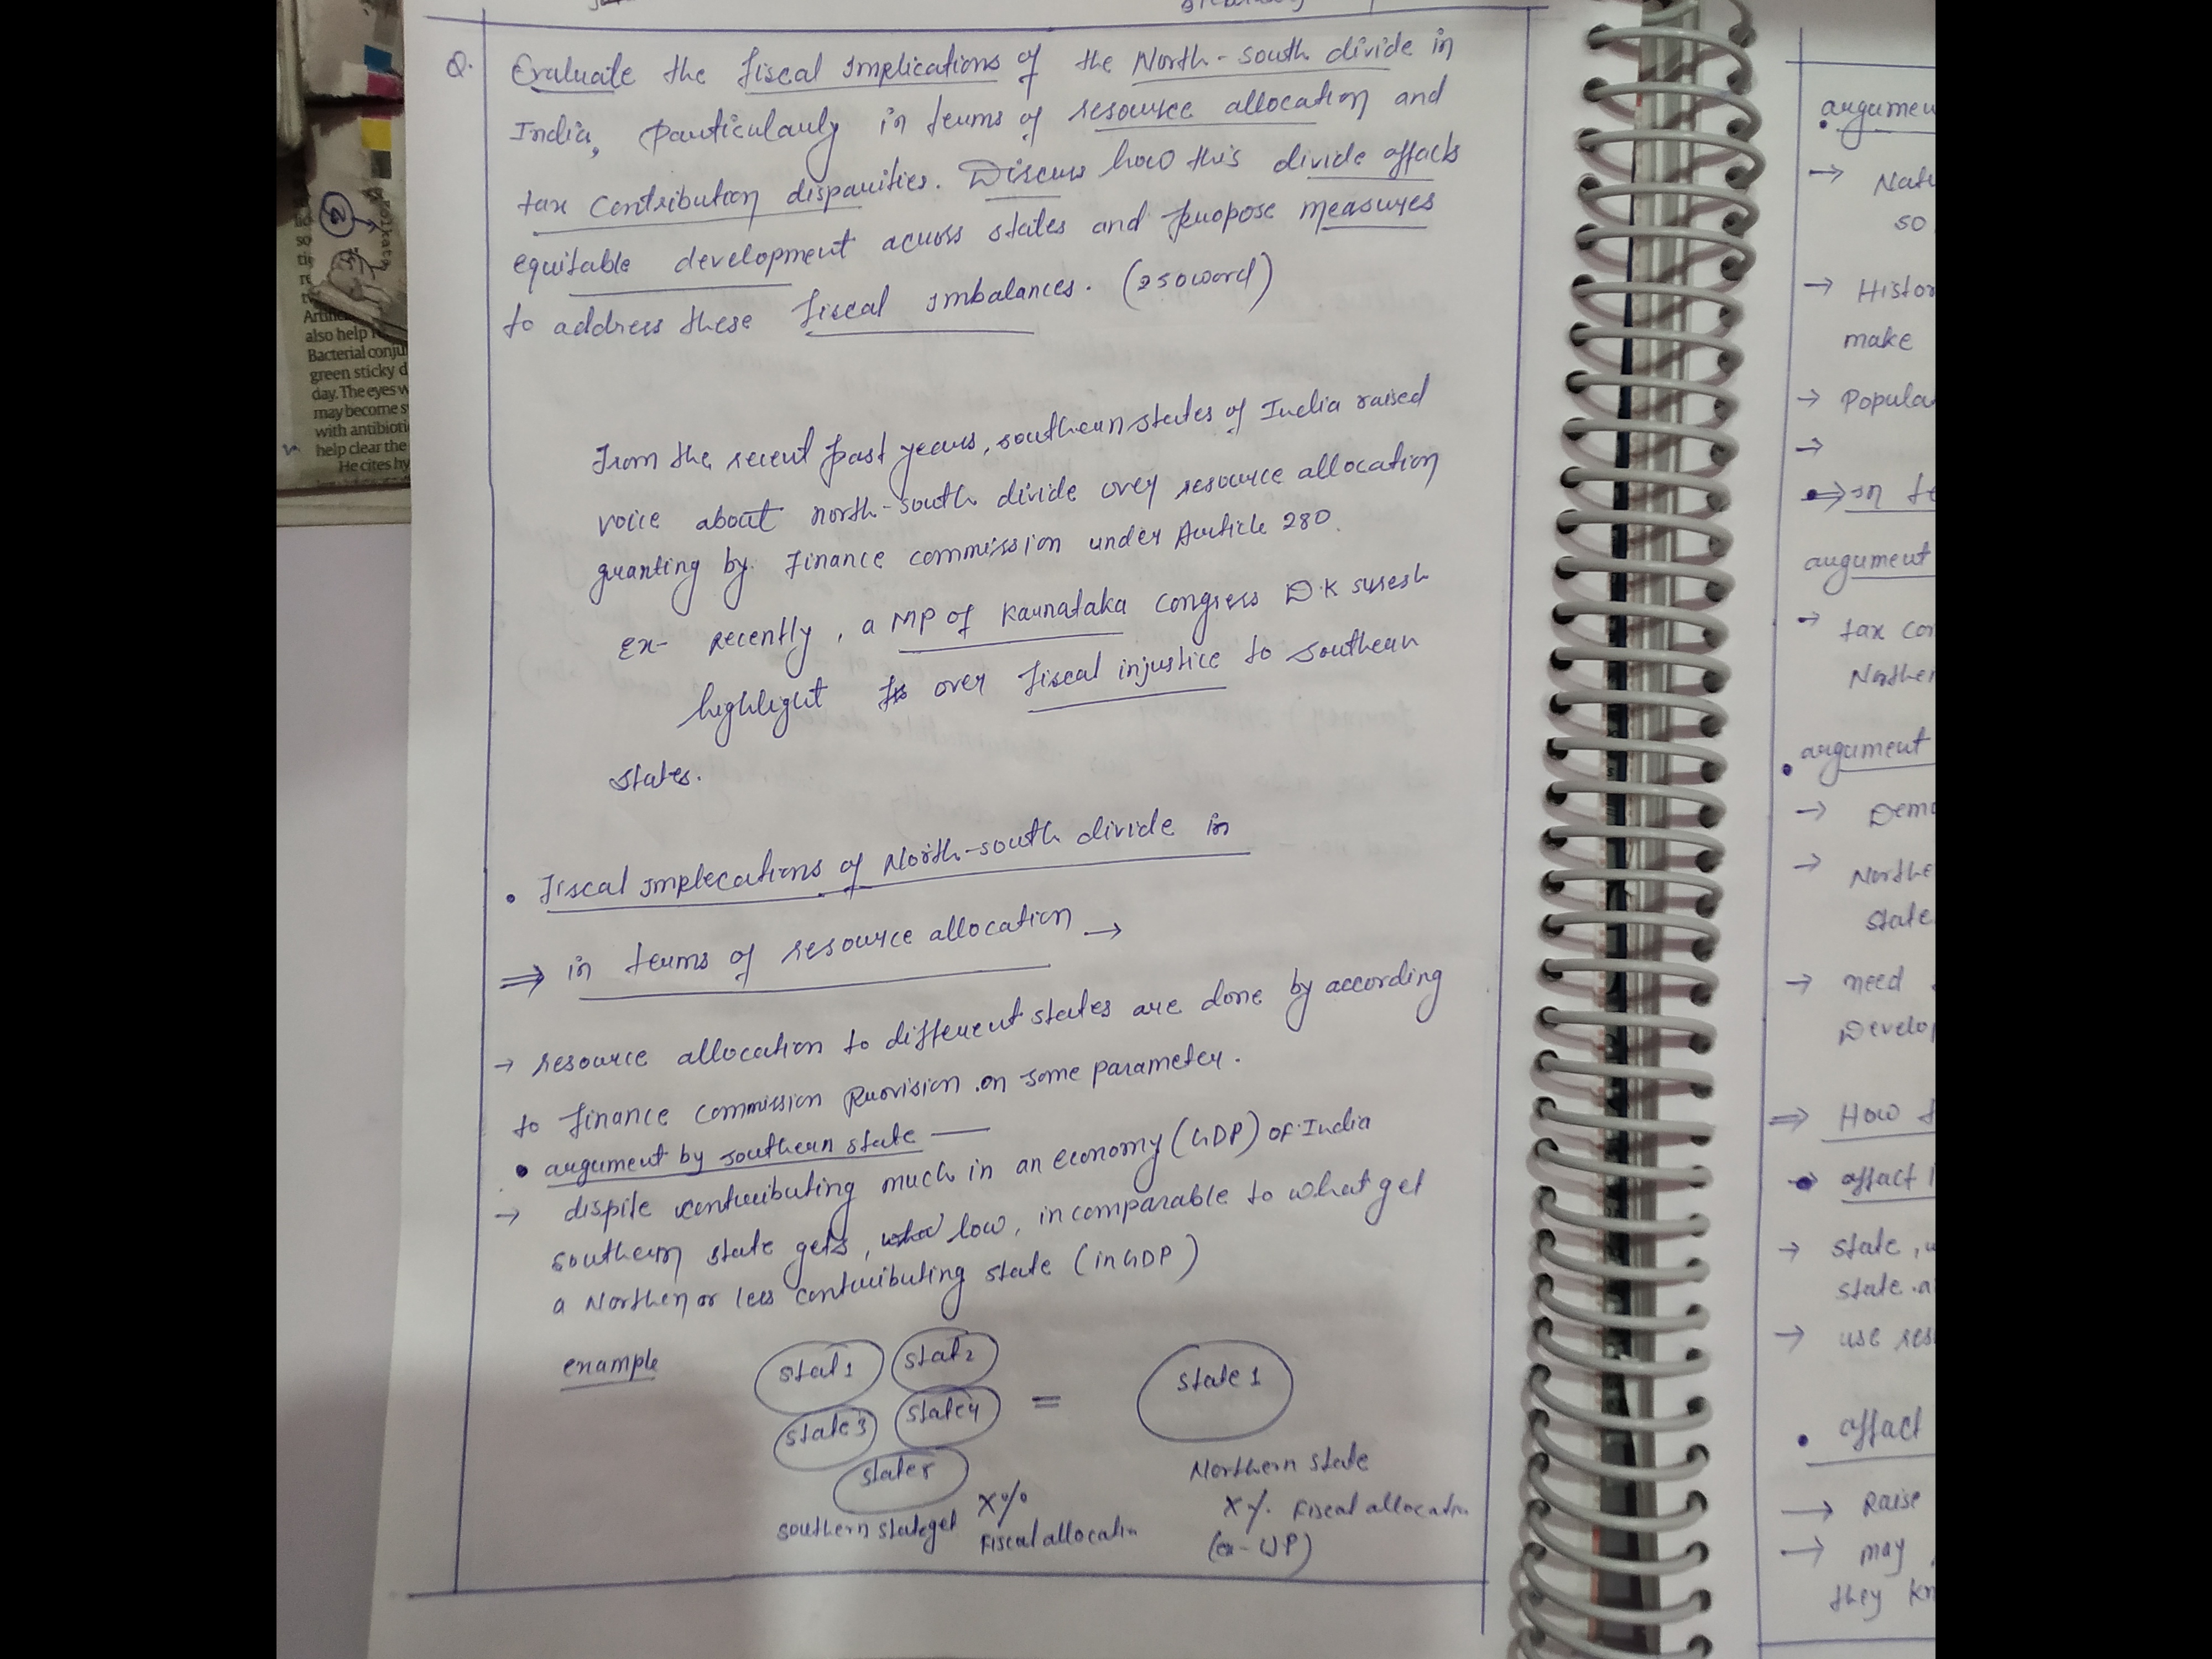 Q. Evaluate the fiscal Implications of the North-south divide in
India, Particularly in terms of resource allocation and
tax contribution disparities. Discuss how this divide affacts
equitable development across states and propose measures
to address these fiscal imbalances. (250word)
From the recent past years, southern states of India raised
voice about north-south divide over resource allocation
granting by Finance commission under Article 280.
Ex- recently, a MP of Karnataka Congress D.K suresh
highlight over fiscal injustice to southern
states.
• Fiscal implecations of North-south divide in
⇒ in terms of resource allocation →
→ resource allocation to different states are done by according
to finance commission Provision on some parameter.
• argument by southern state —
→ dispite contributing much in an economy (GDP) of India
southern state gets, low, in comparable to what get
a Northen or less contributing state (in GDP)
example
stat1 stat2
state3 state4 = state 1
state5
southern state get X%
Fiscal allocatin
Northern state
X%. Fiscal allocation
(ex- UP)
argumen
→ Nat
so
→ Histor
make
→ Popula
→
⇒ in te
argument
→ tax con
Norther
• argument
→ Demo
→ Northe
state
→ need
Develop
⇒ How
affact
→ state,
state.a
→ use res
• affact
→ Raise
→ may
they kn
also help
Bacterial conju
green sticky d
day. The eyes w
may become s
with antibioti
help clear the
He cites hy